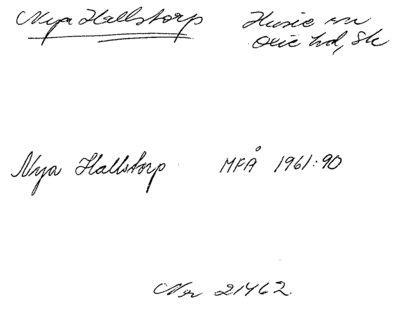 Nya Hallstorp
Husie sn
Oxie hd, Sk
Nya Hallstorp MFÅ 1961:90
Nr 21462